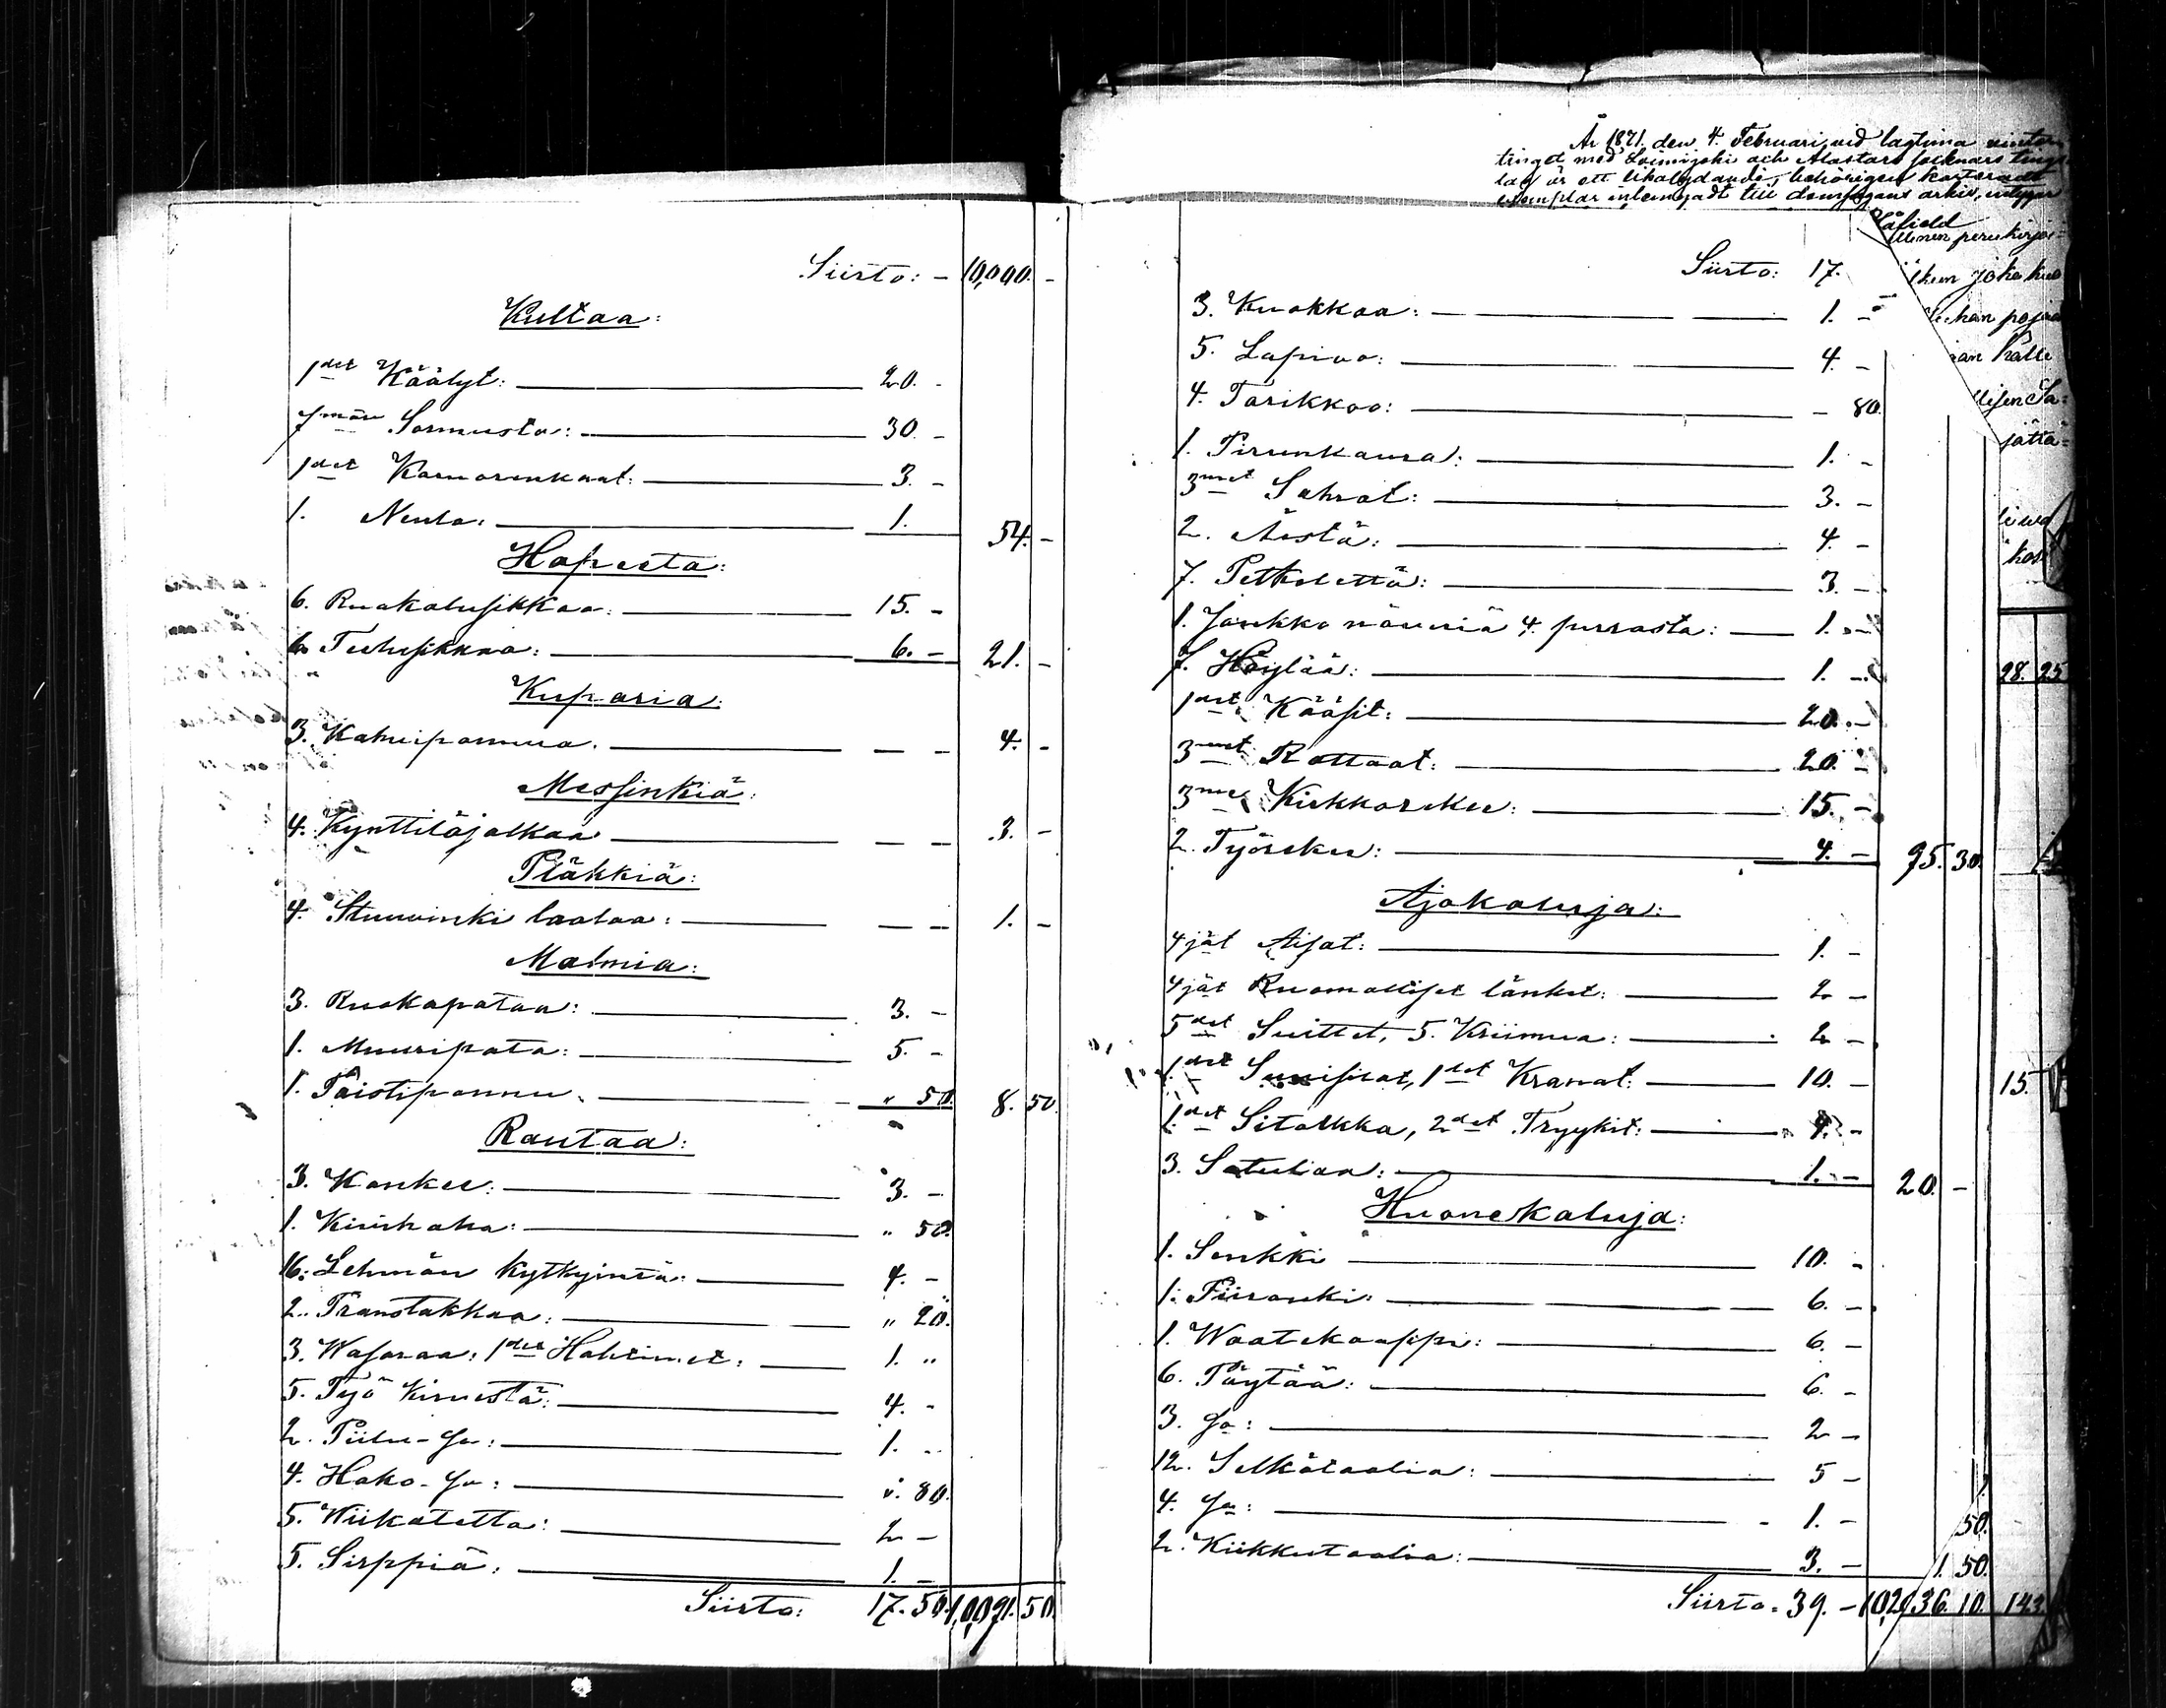 Siirto: - 10,000. -
Kultaa:
1det Käälyt: 20. -
7män Sormusta: 30. -
1det Korvorenkaat: 3. -
1. Neula: 1. 54. -
Hopeata:
6. Ruokalusikkaa: 15. -
6. Teelusikkaa: 6. - 21. -
Kuparia:
3. Kahvipannua. - - 4. -
Messinkiä:
4. Kynttiläjalkaa - - 3. -
Pläkkiä:
4. Stuuvinki laataa: - - 1. -
Malmia:
3. Ruokapataa: 3. -
1. Muuripata: 5. -
1. Paistipannu. " 50. 8. 50.
Rautaa:
3. Kankee: 3. -
1. Kiinhaka: " 50.
16. Lehmän kytkyintä: 4. -
2. Tranotakkaa: " 20.
3. Wasaraa: 1det Hohtimet: 1. "
5. Työ kirvestä: 4. -
2. Piilu-Ja: 1. -
4. Hako-Ja: ". 80.
5. Wiikatetta: 2 -
5. Sirppiä: 1. -
Siirto: 17. 50. 10,091. 50
År 1871. den 4. Februari, vid lagtima vinter
tinget med Loimijoki och Alastaro socknars tings
lag är ett likalydande, behörigen karteradt
exemplar inlemnadt till domsagans arkiv, intygar
Siirto: 17.
3. Kuokkaa: 1. -
5. Lapiaa: 4. -
4. Tarikkoo: - 80.
1. Pirunkaura: 1. -
3met Sahrat: 3. -
2. Äestä: 4. -
7. Petkelettä: 3. -
1. Joukko näveriä 4. purrasta: 1. -
7. Höylää: 1. -
1det Kääsit: 20. -
3met Rattaat: 20. -
3me Kirkkorekee: 15. -
2. Työrekee: 4. - 75. 30.
Ajokaluja:
4jät Aisat: 1. -
4jät Ruomalliset länket: 2 -
5det Suittet, 5. Kriimua: 2 -
1det 1det Kranat: 10. -
1det Sitolkka, 2det Tryykit: 4. -
3. Satulaa: 1. - 20. -
Huonekaluja:
1. Senkki 10. -
1. Piironki: 6. -
1. Waatekaappi: 6. -
6. Pöytää: 6. -
3. Ja: 2 -
12. Selkätoolia: 5 -
4. Ja: - 1. -
2. Kiikkutoolia: 3. -
Siirto: 39. - 10,2
perukirja
joka
pojan
Kalle
jättä=
28. 25
15.
50.
1. 50.
36. 10. 143